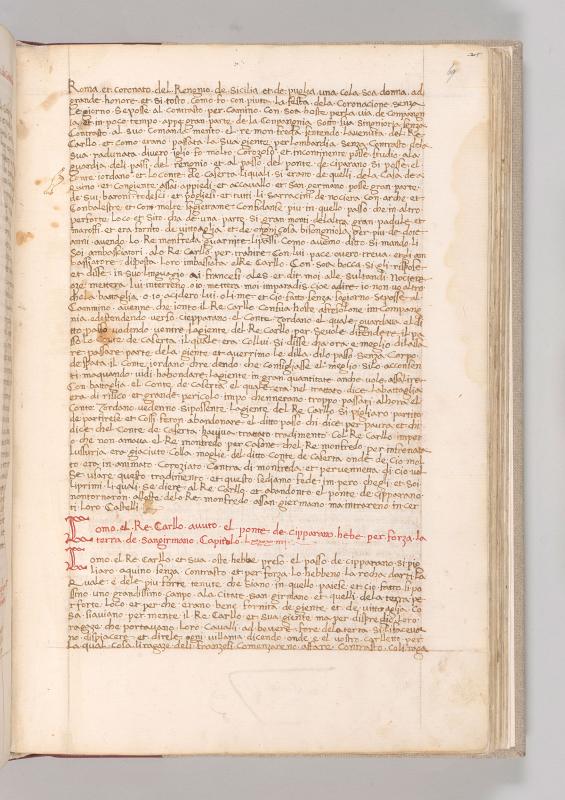 Roma. et coronato. del. Rengnio. de. Sicilia. et de. puglia. una. cola. soa. donna. ad
grande. honore. et. si. tosto. Como. fo. con piuta. la. festa. dela. coronacione. senza
Le giorno. Se posse. al. contrasto. per. camino. Con. soa. hoste. per la. via. de. Campangn
ia. et in poco. tempo. appe. gran. parte. de. la. Compangnia. sotto. sua. singnioria. senza
Contrasto. al. suo. Comande. mento. el. re. monfreda. sentendo. la venita. del. Re
Carllo. et como. erano. passata. la. Sua. giente. per Lombardia. senza. Contrasto. dela
sua. radunata. fo. molto. Corozoso. et incontinente. posse. studio. ala
guardia. deli. passi. del. rengnio. et. al. passo. del. ponte. de. ciparano. Si posse. el
conte. iordano. et. lo conte. de. Caserta. li quali. si. erano. de. quelli. de la. Casa. de a
quino. et. con. giente. assai. appiedi. et. accavallo. et. San. germano. posse. gran. parte
de. sui. baroni. todesci. et. pogliesi. et. tutti. li. Sarracini. de. nociera. Con. arche. et
Con. balestre. et. Con. molte. sagiettame. Confidanse. piu. in quello. passo. che. in altro
per forte. Loco. et. Sito. che. da. una. parte. Si. gran. monti. de laltra. gran. padule. et
marossi. et. era. fornito. de. vittoaglia. et. de. ongni. Cosa. bisongniosa. per. piu. de. doie
anni. avendo. Lo. Re. monfreda. guarnite. li passi. Como. avemo. ditto. Si. mando. li
Soi. ambasciatori. a lo Re. Carllo. per. trahire. Con lui. pace. overo. treva. et. gli. am
bassiatore. disposta. loro. imbassiata. el Re. Carllo. Con. soa. bocca. si. gli. rispose
et disse. in suo. linguagio. ai. francesi. ales. et dit. moi. alle. Sultan. di. Nociere
ore. mettera. lui. interreno. o io. mettera. moi. imparadis. cioe. a dire. io. non. vo altro
che la. battaglia. o. io. acidero. lui. o li. me. et. cio. fatto. senza. sagiorno. Se posse. al
Cammino. avenne. che. ionto. il Re. Carllo. Con sua. hoste. a fresolone. im Campane
nia. edesendendo. verso. Cieppano. el. Conte. Iordano. el quale. guardava. el di
tto. passo. vedendo. venire. la giente. del. Re. Carllo. per. Se vole. difendere. il pa
sso. Lo Conte. de. Caserta. il quale. era. Collui. Si. disse. che. era. e meglio. di lassa
re. passare. parte. de la. giente. et averrimo. le. dilla. dilo passo. Senza. Corpo.
de spata. il conte. iordano. cre. dendo. che. Consigliasse. el. meglio. Si. lo acconsen
ti. ma. quando. vidi. habondare. la giente. in gran. quantitate. ancho. vole. assalire.
Con. battaglia. el. Conte. de. Caserta. el. quale. era. nel. trattato. dice. la battaglia.
era. di risico. et. grande. pericolo. impo. che. nnerano. troppo. passati. alhora. el
Conte. Zordano. vedendo. si possente. la giente. del. Re. Carllo. Si pigliaro. partito
de partirese. et. Cossi. feron. abandonare. el. ditto. passo. chi. dice. per. paura. et. chi
dice. chel. Conte. de. Caserta. havuta. trattato. tradimento. Col. Re. Carllo. imper
o. che. non. amava. el. Re. monfredo. per. Casone. chel. Re. monfredo. per. infrenata
Lussuria. era. giaciuto. Colla. moglie. del. ditto. Conte. de. Caserta. onde. de. Cio. mol
to. era. in animato. Corozziato. Contra. di. monfreda. et pervenneta. di. cio vol
Se. usare. questo. tradimento. et questo. sediamo. fede. im pero. che gli. et Soi
li primi. li quali. Se. diero. al Re. Carllo. et abandonto. el ponte. de. cipparano.
non tornoron. all oste. de lo Re. monfredo. a ssan. giermano. ma intrareno. in cer
ti. Loro. Castelli
Lomo. el. Re. Carllo. avuto. el. ponte. de. cipparano. hebe. per forza. la
terra. de. sangirmano. Capitolo.
Lomo. el Re. Carllo. et sua. oste. hebbe. preso. el. passo. de. cipparano. Si pig
liaro. aquino. senza. Contrasto. et. per forza. lo. hebbeno. la rocha. darci. la
quale. e. dele. piu. forte. tenute. che. siano. in quello. paiese. et. cio. fatto. si po
sino. uno. grandissimo. campo. ala. citate. San. girmano. et quelli. dela. terra. pe
r forte. Loco. et per che. erano. bene. fornita. de giente. et de. vittoaglia. Co
sa. si aviano. per niente. il Re. Carllo. et Sua. giente. ma per. dispredio. Loro
ragazze. che. portavano. Loro. Cavalli. ad bevere. fore. de la terra. Si li facevano
no. dispiacere. et direle. ongni. villania. dicendo. onde. e. il vostro. carlletto. per
la. qual. Cosa. li ragaze. deli. Franzosi. Comenzareno. affare. Contrasto. coli. raga